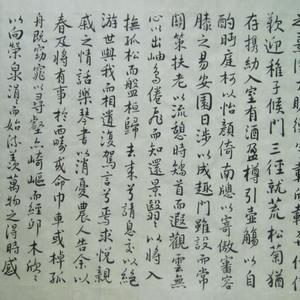 歡迎稚子候門三徑就荒松菊猶
存攜幼入室有酒盈樽引壺觴以自
酌眄庭柯以怡顏倚南牕以寄傲審容
膝之易安園日涉以成趣門雖設而常
關策扶老以流憩時矯首而遐觀雲無
心以出岫鳥倦飛而知還景翳〻以將入
撫孤松而盤桓歸去來兮請息交以絕
游世與我而相遺復駕言兮焉求悅親
戚之情話樂琴書以消憂農人告余以
春及將有事於西疇或命巾車或棹孤
舟既窈窕以尋壑亦崎嶇而經邱木欣〻
以向榮泉涓〻而始流羨萬物之得時感